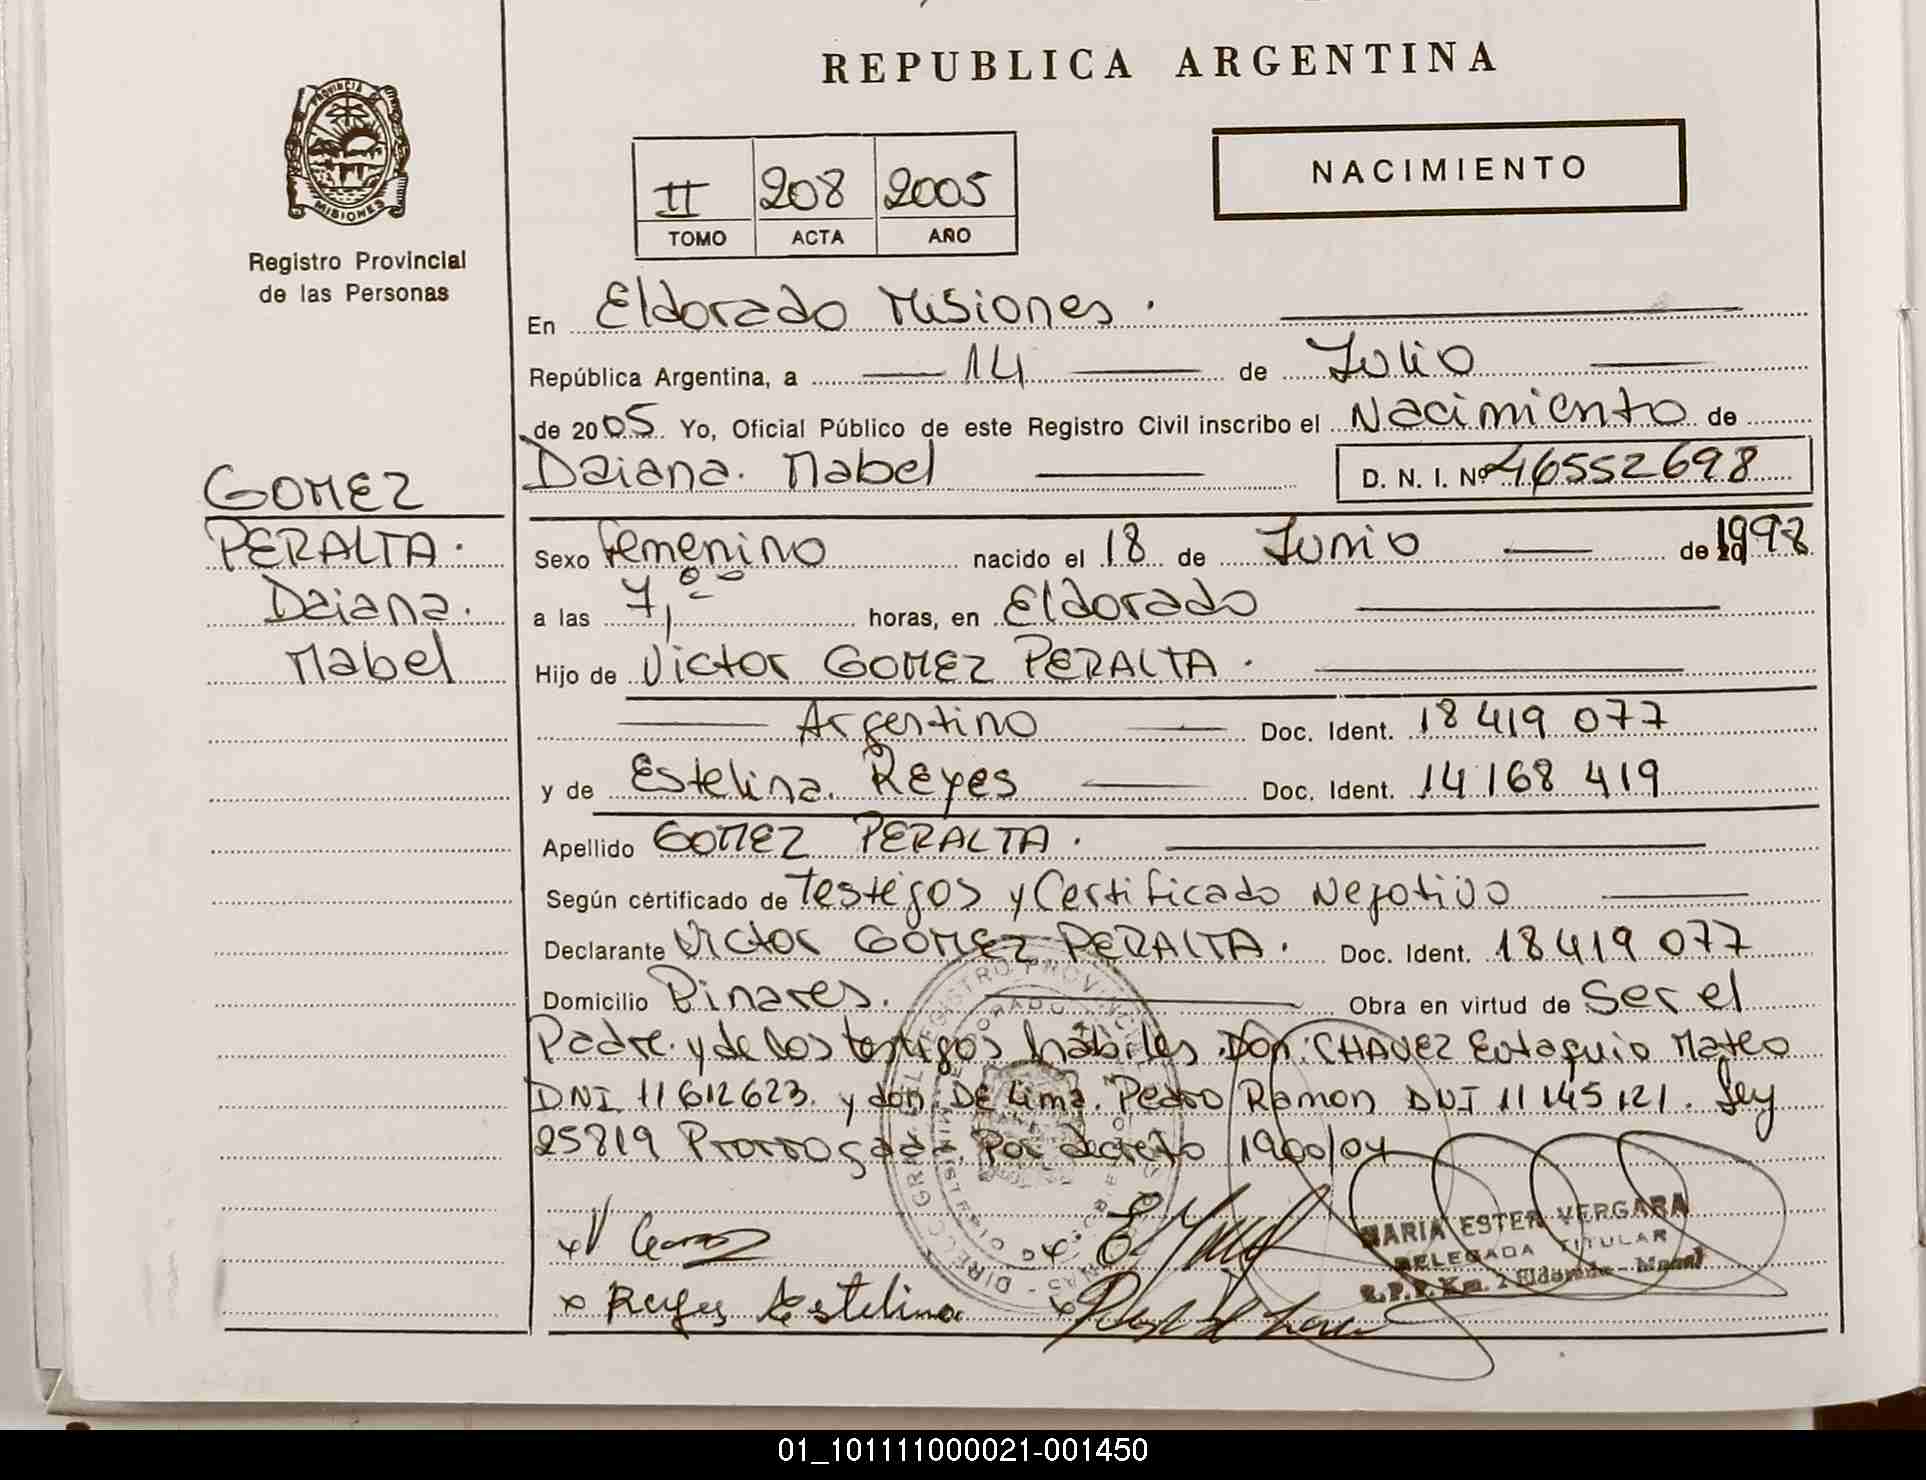 REPUBLICA ARGENTINA
PROVINCIA DE
MISIONES
Registro Provincial
de las Personas
II 208 2005
TOMO ACTA AÑO
NACIMIENTO
En Eldorado Misiones.
República Argentina, a 14 de Julio
de 2005 Yo, Oficial Público de este Registro Civil inscribo el Nacimiento de
Daiana Mabel D. N. I. Nº 46552698
GOMEZ
PERALTA
Daiana
Mabel
Sexo femenino nacido el 18 de Junio de 1998
a las 7,00 horas, en Eldorado
Hijo de Victor GOMEZ PERALTA
Argentino Doc. Ident. 18 419 077
y de Estelina Reyes Doc. Ident. 14 168 419
Apellido GOMEZ PERALTA
Según certificado de Testigos y Certificado Negativo
Declarante Victor GOMEZ PERALTA Doc. Ident. 18 419 077
Domicilio Pinares. Obra en virtud de Ser el
Padre y de los testigos hábiles Don: CHAVEZ Eutaquio Mateo
DNI 11 612 623 y don DE Lima Pedro Ramon DNI 11 145 121. Ley
25819 Prorrogada Por decreto 1900/04
x V Gomez
x Reyes Estelina
MARIA ESTER VERGARA
DELEGADA TITULAR
R.P.P. Km. 2 Eldorado - Mnes
01_101111000021-001450